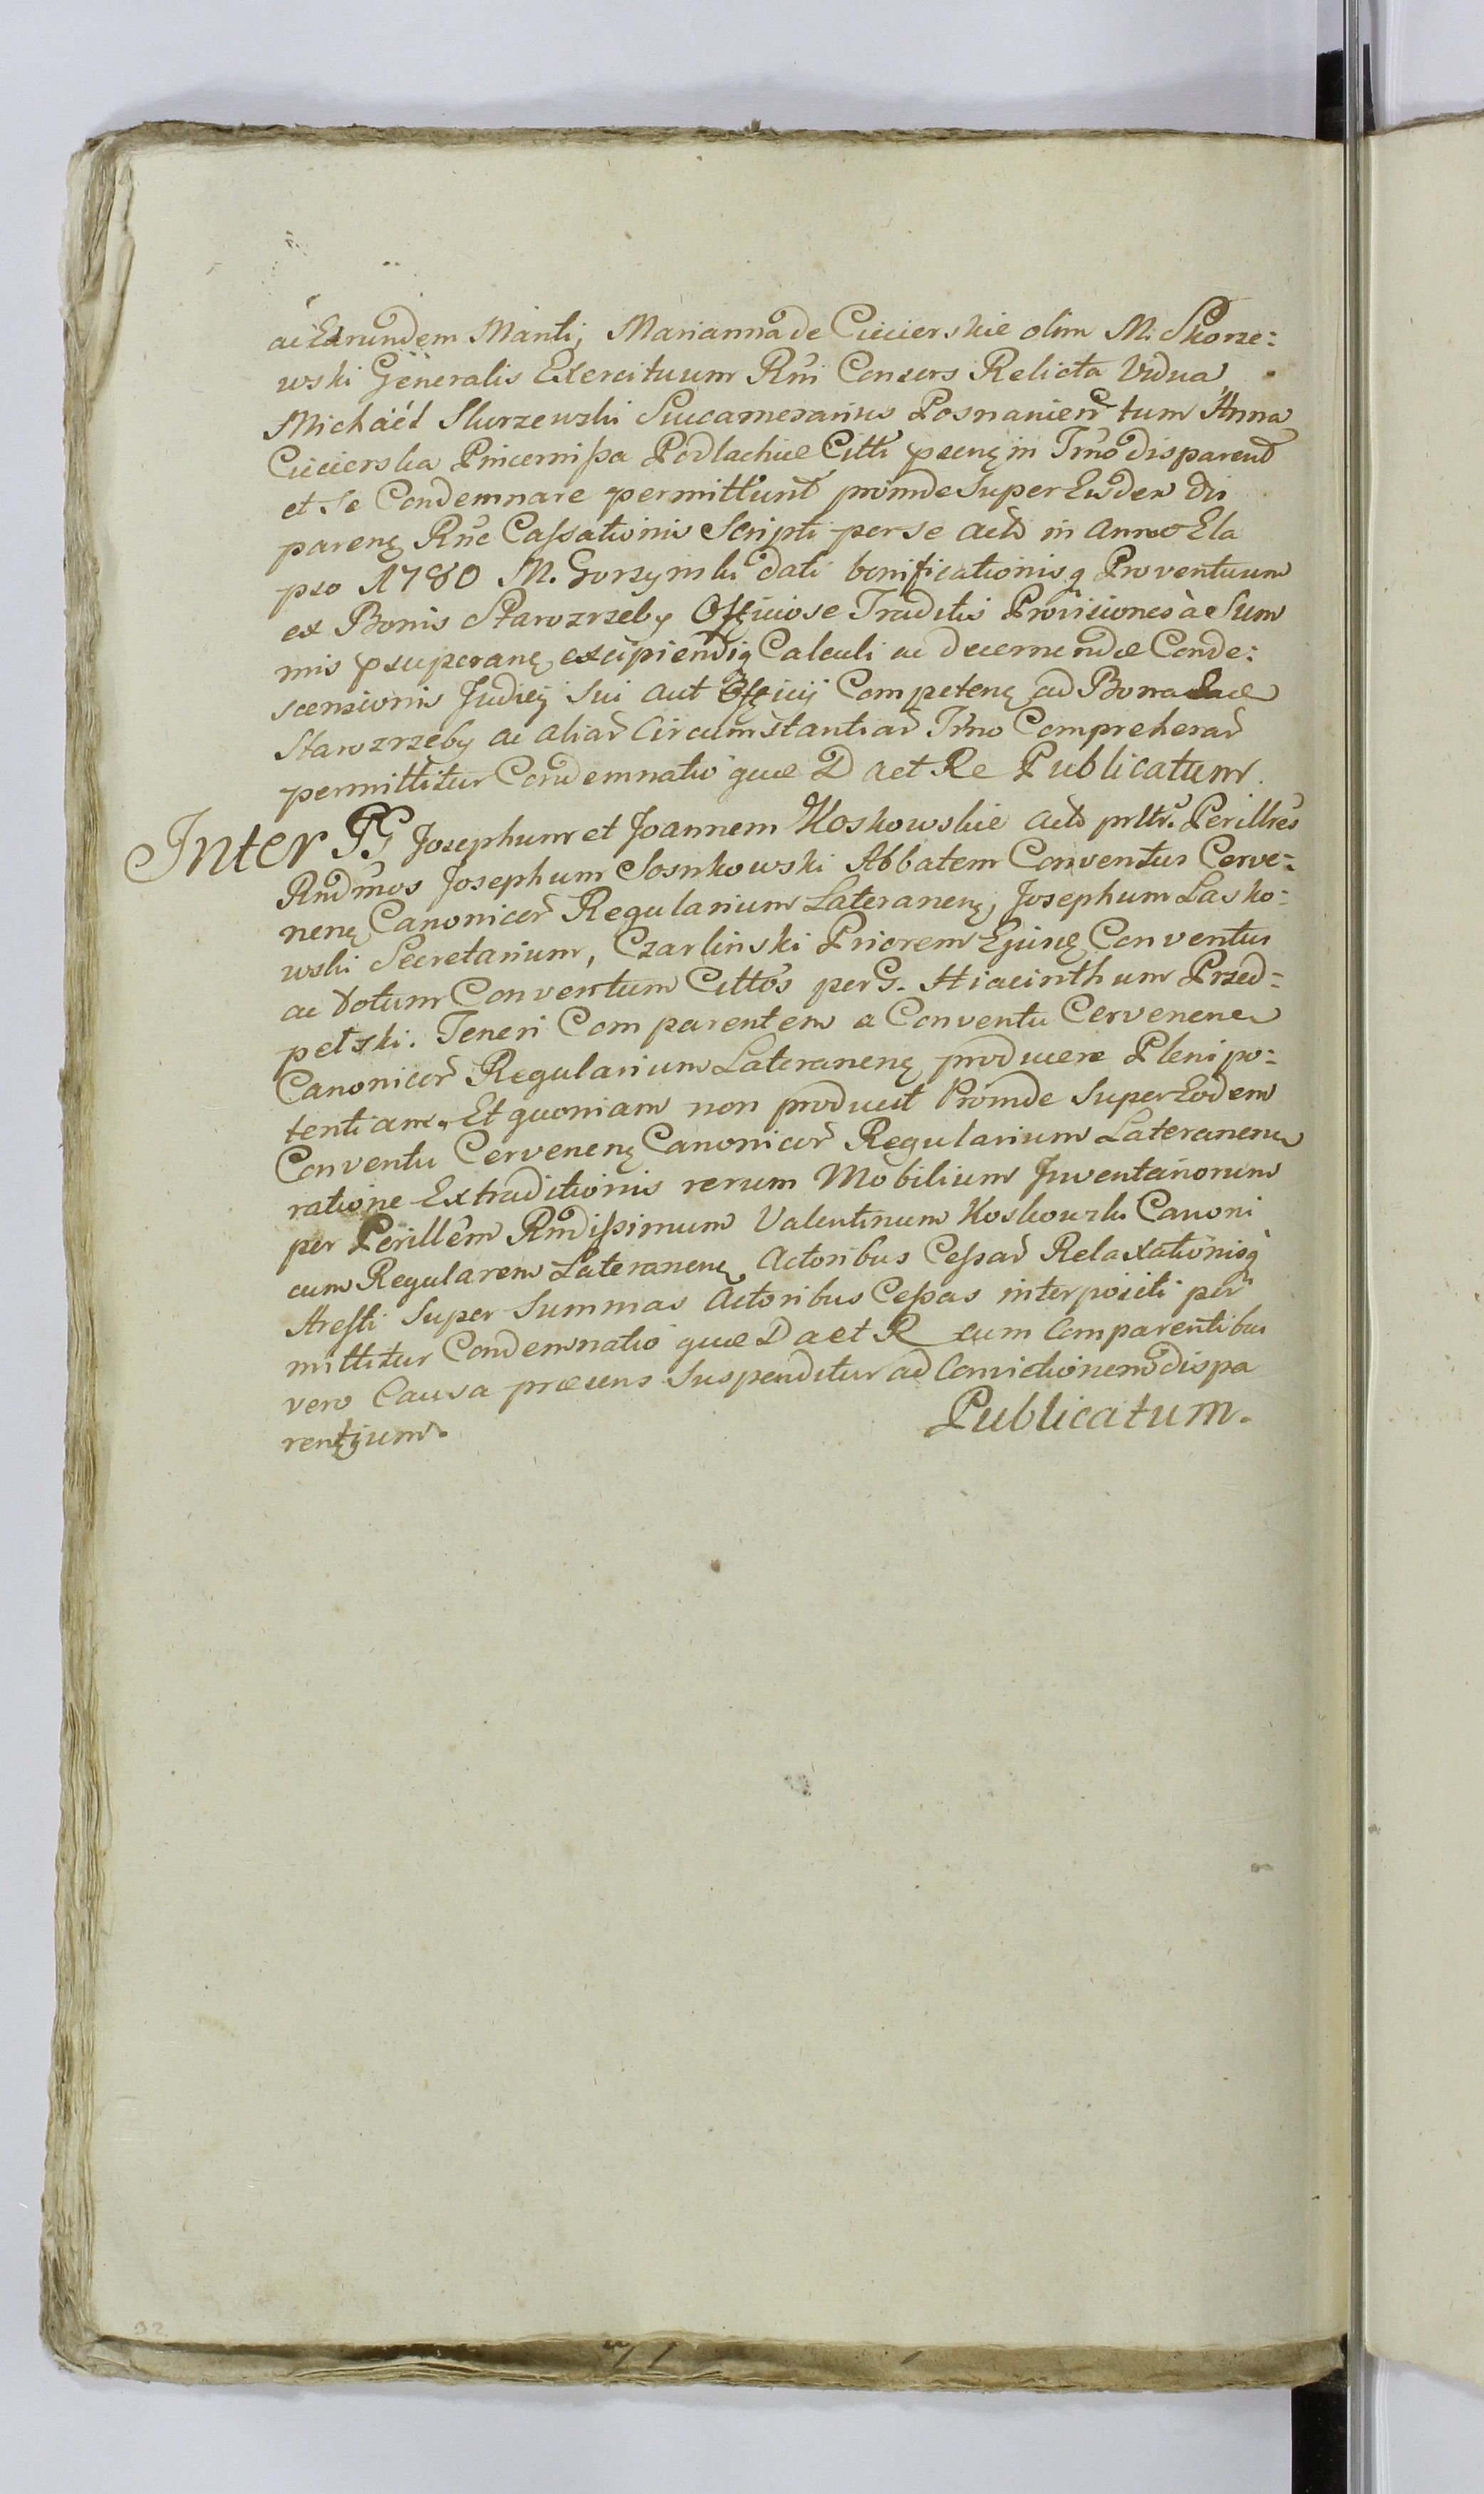 ac Earundem Mariti, Marianna de Ciecierskie olim M. Skorze:
wski Generalis Exercituum Rni Consors Relicta Vidua
Michaël Skurzewski Succamerarius Posnanien tum Anna
Ciecierska Pincernißa Podlachiæ Citti pseng in Trno disparend
et se Condemnare permittunt proinde super Eisdem dis
pareng Rne Caßationis Scripti per se Acto in Anno Ela
pso 1780 M. Gorzynski dati bonificationisq Proventuum
ex Bonis Starozrzeby Officiose Traditis Provisiones à Sum
mis psuperang excipiendiq Calculi ac decernendæ Conde:
scensionis Judicij sui aut Officij Competeng ad Bona
Starozrzeby ac aliar Circumstantiar Trno Comprehensar
permittitur Condemnatio quæ D aet Re Publicatum.
Inter GG Josephum et Joannem Koskowskie Acto prltr. Perillres
Rndmos Josephum Sosnkowski Abbatem Conventus Cerve=
neng Canonicor Regularium Lateraneng, Josephum Lasko=
wski Secretarium, Czarlinski Priorem Ejusq Conventus
ac totum Conventum Cittos per G. Hiacinthum Przed=
petski. Teneri Comparentem a Conventu Cervenene
Canonicor Regularium Lateraneng producere Plenipo=
tentiam. Et quoniam non producit Proinde super Eodem
Conventu Cerveneng Canonicor Regularium Lateranene
ratione Extraditionis rerum Mobilium Inventariorum
per Perillem Rndißimum Valentinum Koskowski Canoni
cum Regularem Lateraneng Actoribus Ceßar Relaxationisq
Aresti super Summas Actoribus Ceßas interpositi per
mittitur Condemnatio quæ D aet R cum Comparentibus
vero Causa præsens Suspenditur ad Convictionem dispa
rentium.
Publicatum.
92